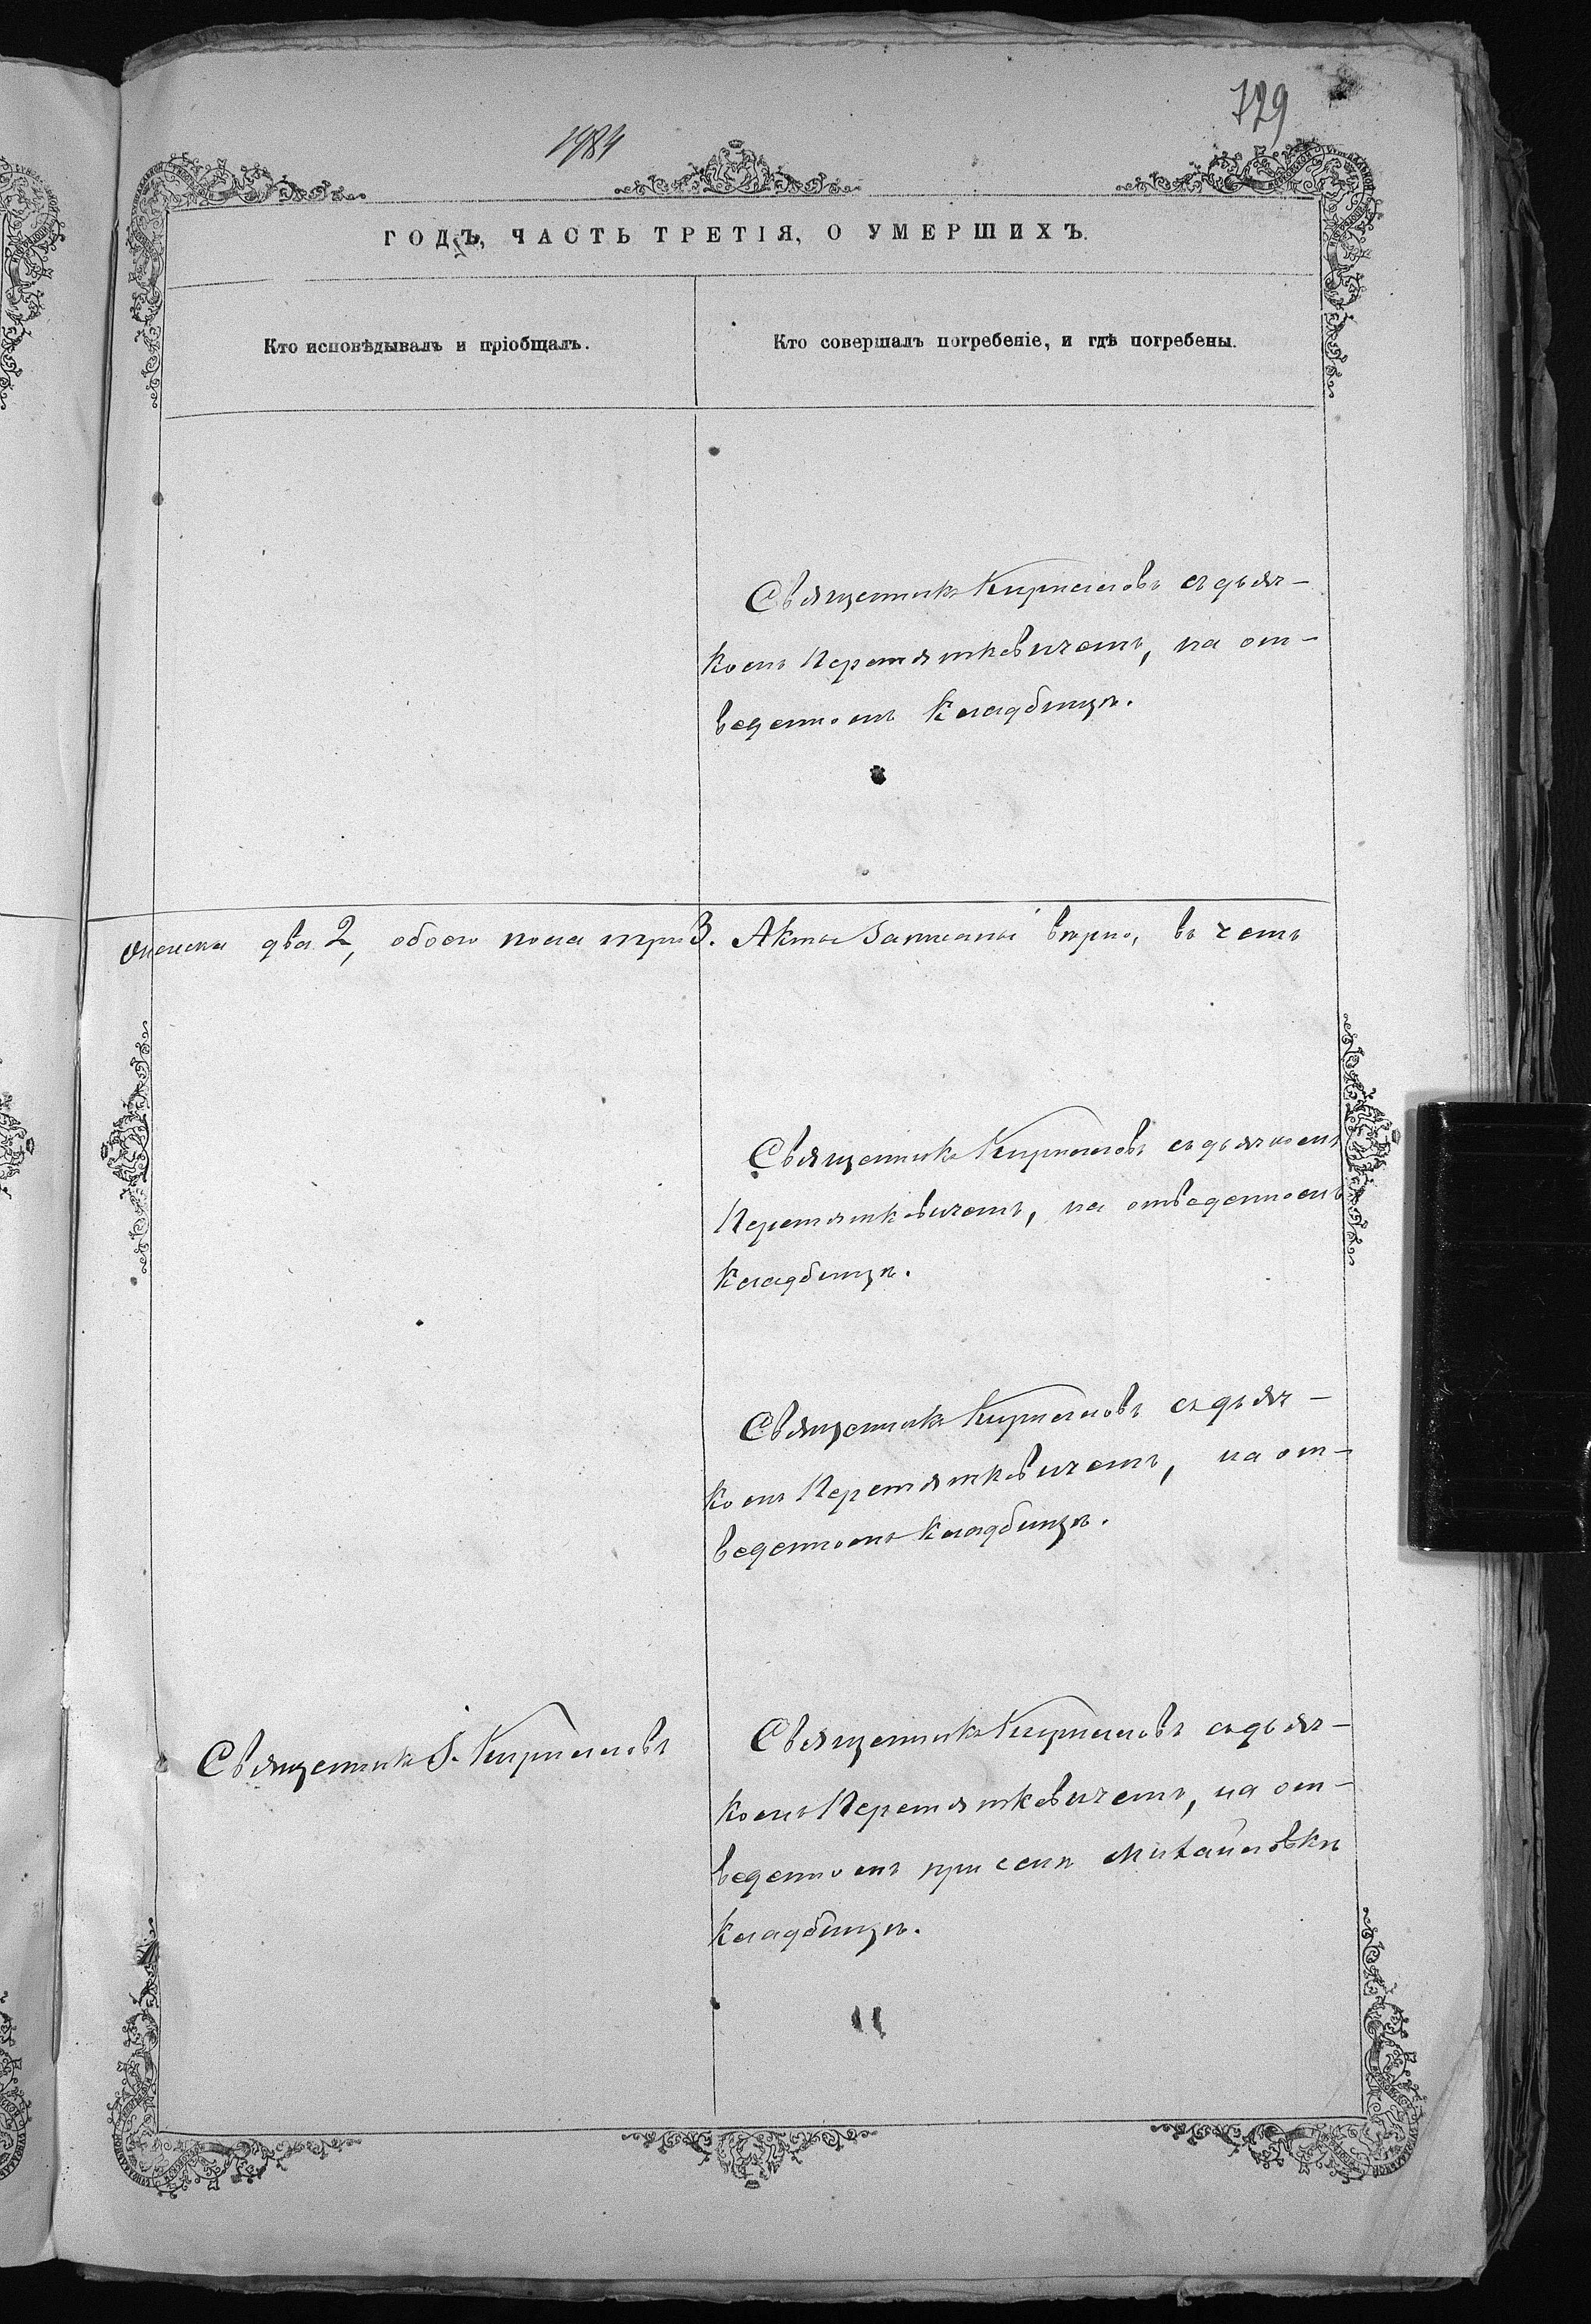 1984
729
ГОДЪ, ЧАСТЬ ТРЕТІЯ, О УМЕРШИХЪ.
Кто исповѣдывалъ и пріобщалъ.
Кто совершалъ погребеніе, и гдѣ погребены.
Священникъ Кирилловъ съ дьяч-
комъ Перетятковичемъ, на от-
веденномъ кладбищѣ.
женска два 2, обоего пола три 3. Акты записаны вѣрно, въ чемъ
Священникъ Кирилловъ съ дьячкомъ
Перетятковичемъ, на отведенномъ
кладбищѣ.
Священникъ Кирилловъ съ дьяч-
комъ Перетятковичемъ, на от-
веденномъ кладбищѣ.
Священникъ І. Кирилловъ
Священникъ Кирилловъ съ дьяч-
комъ Перетятковичемъ, на от-
веденномъ при селѣ Михайловкѣ
кладбищѣ.